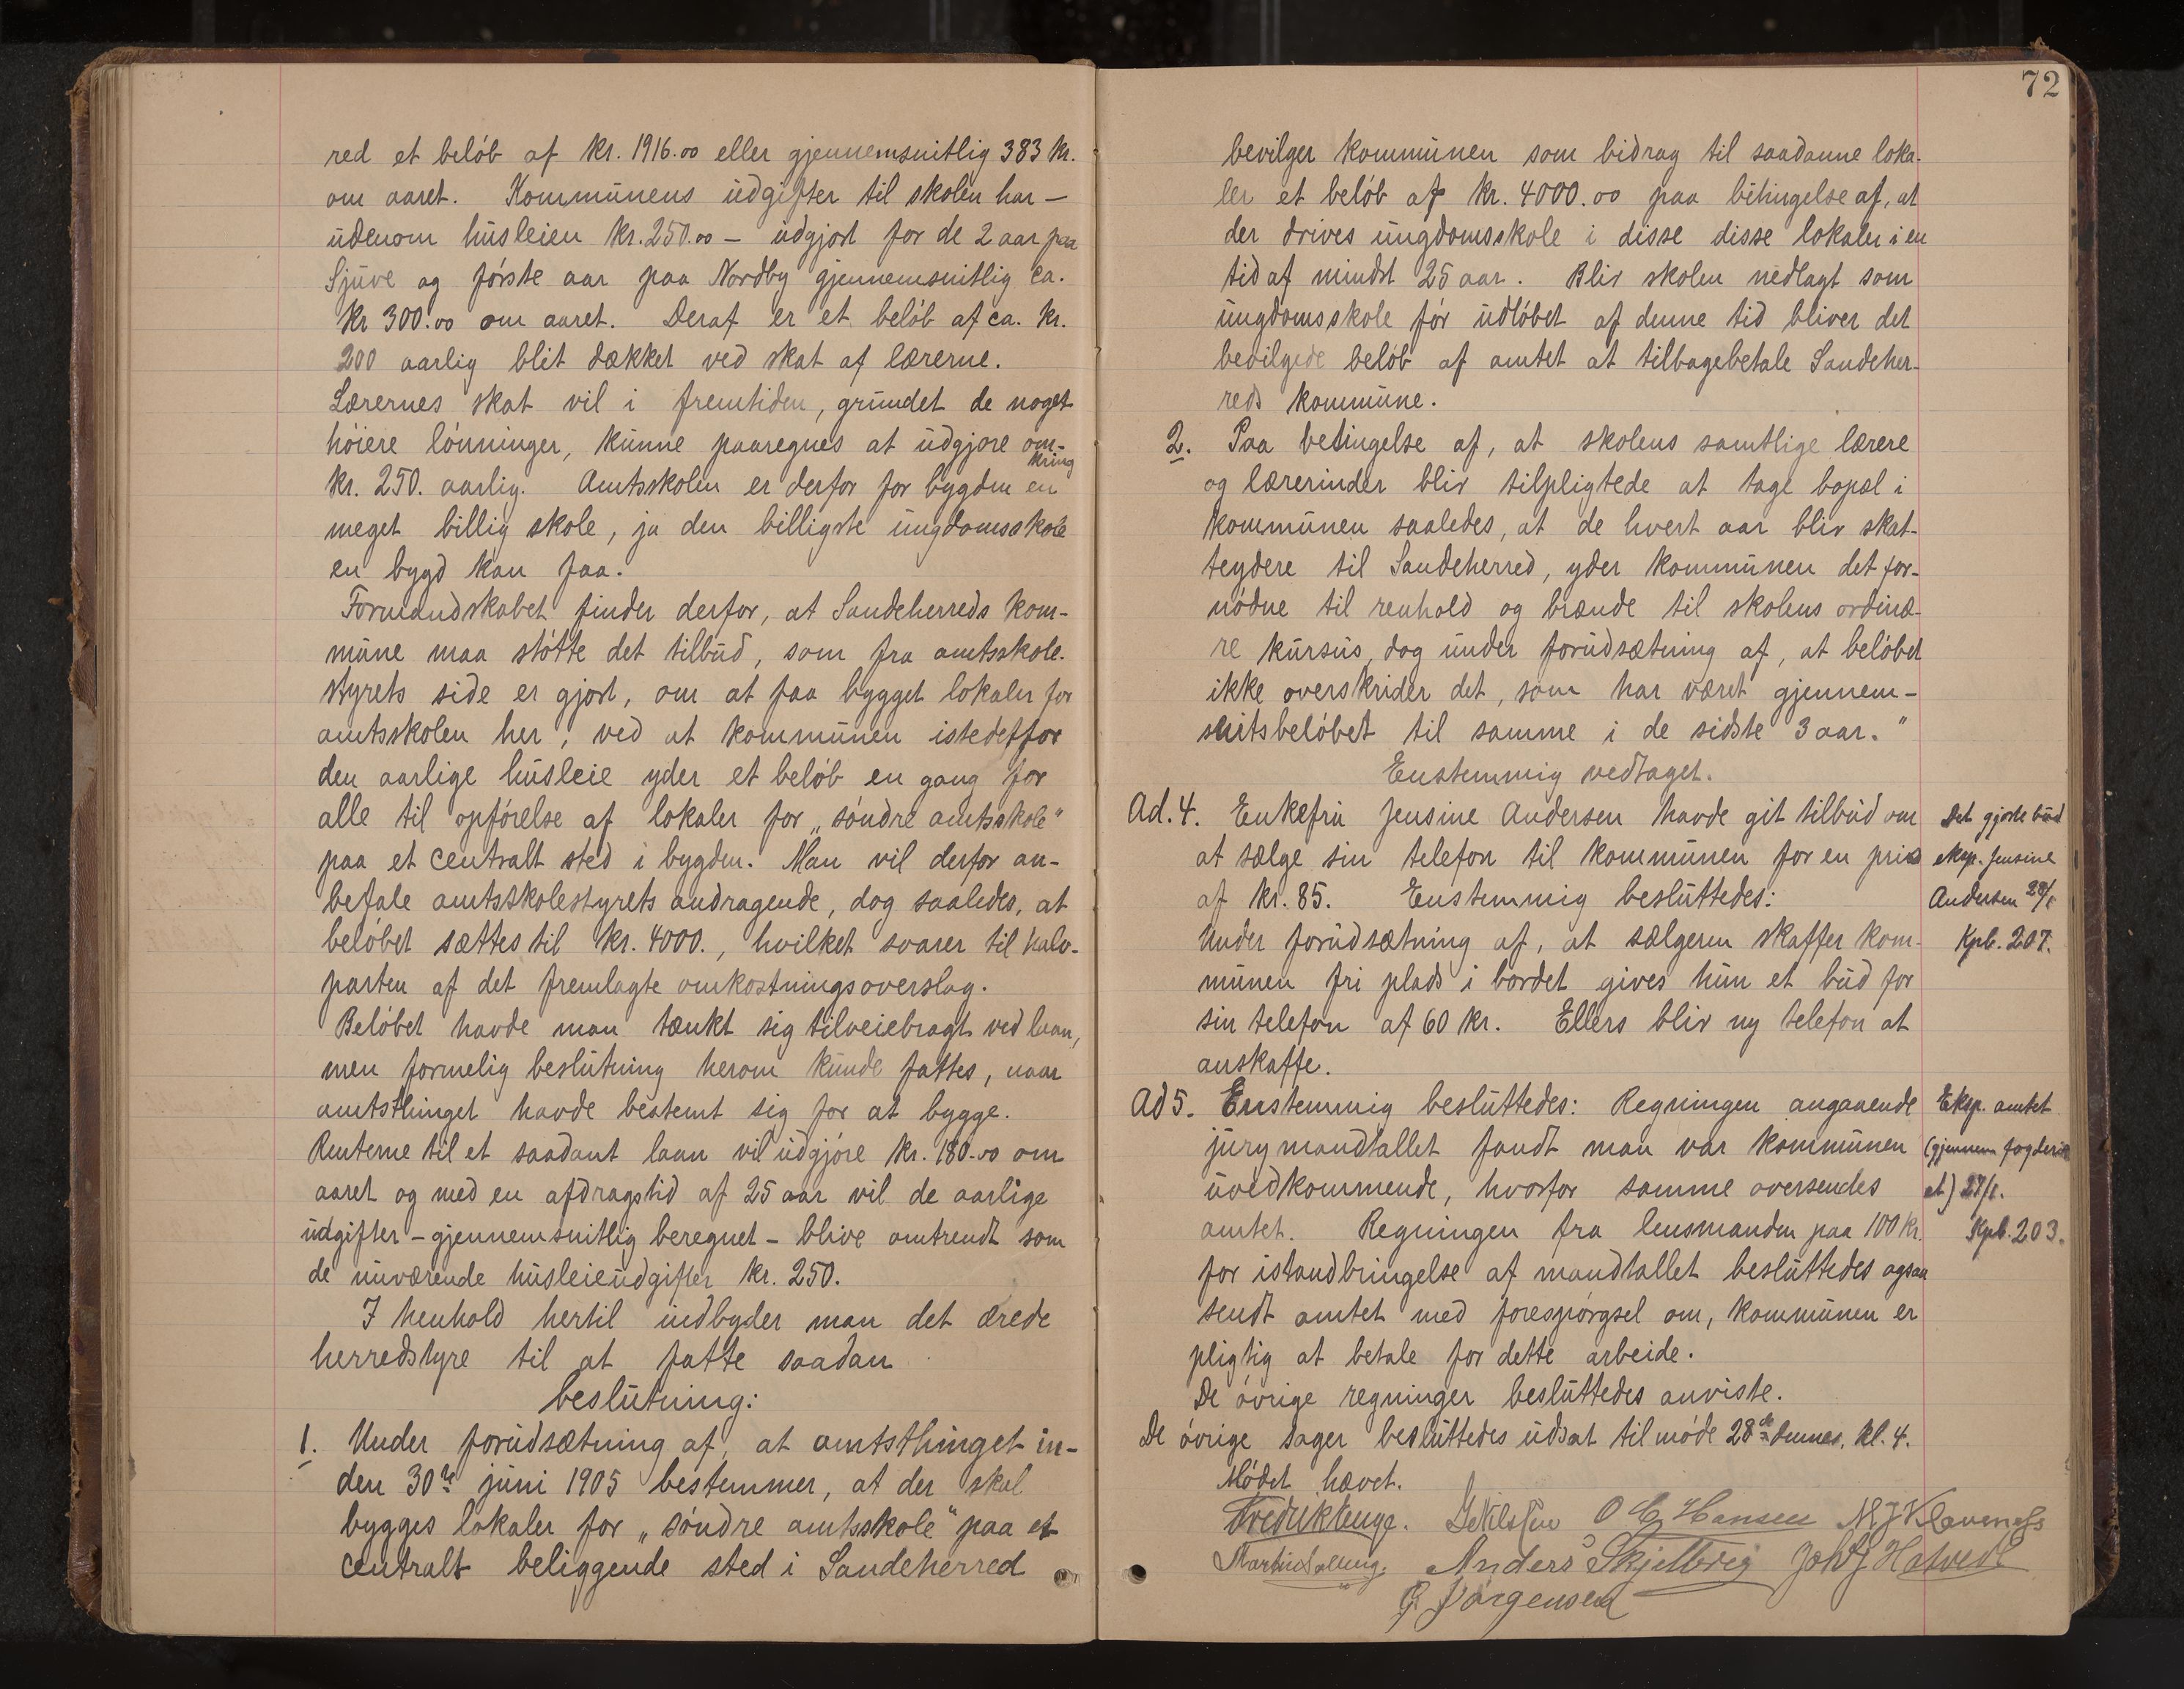 red et beløb af kr. 1916.00 eller gjennemsnitlig 383 kr.
om aaret. Kommunens udgifter til skolen har —
udenom husleien kr. 250.00 — udgjort for de 2 aar paa
Sjuve og første aar paa Nordby gjennemsnitlig ca.
kr 300.00 om aaret. Deraf er et beløb af ca. kr.
200 aarlig blit dækket ved skat af lærerne.
Lærernes skat vil i fremtiden, grundet de noget
høiere lønninger, kunne paaregnes at udgjøre om-
kring
kr. 250. aarlig. Amtsskolen er derfor for bygden en
meget billig skole, ja den billigste ungdomsskole
en bygd kan faa.
Formandskabet finder derfor, at Sandeherreds kom-
mune maa støtte det tilbud, som fra amtsskole-
styrets side er gjort, om at faa bygget lokaler for
amtsskolen her, ved at kommunen istedetfor
den aarlige husleie yder et beløb en gang for
alle til opførelse af lokaler for „søndre amtsskole"
paa et centralt sted i bygden. Man vil derfor an-
befale amtsskolestyrets andragende, dog saaledes, at
beløbet sættes til kr. 4000., hvilket svarer til halv-
parten af det fremlagte omkostningsoverslag.
Beløbet havde man tænkt sig tilveiebragt ved laan,
men formelig beslutning herom kunde fattes, naar
amtsthinget havde bestemt sig for at bygge.
Renterne til et saadant laan vil udgjøre kr. 180.00 om
aaret og med en afdragstid af 25 aar vil de aarlige
udgifter - gjennemsnitlig beregnet - blive omtrendt som
de nuværende husleieudgifter kr. 250.
I henhold hertil indbyder man det ærede
herredstyre til at fatte saadan
beslutning:
1. Under forudsætning af, at amtsthinget in-
den 30te juni 1905 bestemmer, at der skal
bygges lokaler for „søndre amtsskole" paa et
centralt beliggende sted i Sandeherred
72
bevilger kommunen som bidrag til saadanne loka-
ler et beløb af kr. 4000.00 paa betingelse af, at
der drives ungdomsskole i disse disse lokaler i en
tid af mindst 25 aar. Blir skolen nedlagt som
ungdomsskole før udløbet af denne tid bliver det
bevilgede beløb af amtet at tilbagebetale Sandeher-
reds kommune.
2. Paa betingelse af, at skolens samtlige lærere
og lærerinder blir tilpligtede at tage bopæl i
kommunen saaledes, at de hvert aar blir skat-
teydere til Sandeherred, yder kommunen det for-
nødne til renhold og brænde til skolens ordinæ-
re kursus, dog under forudsætning af, at beløbet
ikke overskrider det, som har været gjennem-
snitsbeløbet til samme i de sidste 3 aar."
Enstemmig vedtaget.
Ad. 4. Enkefru Jensine Andersen havde git tilbud om
at sælge sin telefon til kommunen for en pris
af kr. 85. Enstemmig besluttedes:
Under forudsætning af, at sælgeren skaffer kom-
munen fri plads i bordet gives hun et bud for
sin telefon af 60 kr. Ellers blir ny telefon at
anskaffe.
Det gjorte bud
eksp. Jensine
Andersen 28/1
Kpb. 207.
Ad 5. Enstemmig besluttedes: Regningen angaaende
jurymandtallet fandt man var kommunen
uvedkommende, hvorfor samme oversendes
amtet. Regningen fra lensmanden paa 100 kr.
for istandbringelse af mandtallet besluttedes ogsaa
sendt amtet med forespørgsel om, kommunen er
pligtig at betale for dette arbeide.
De øvrige regninger besluttedes anviste.
De øvrige sager besluttedes udsat til møde 28de dennes. kl. 4.
Mødet hævet.
Eksp. amtet
(gjennem fogderi-
et) 27/1.
Kpb. 203.
O Chr Hansen
Anders Skjelbrei
Jørgensen